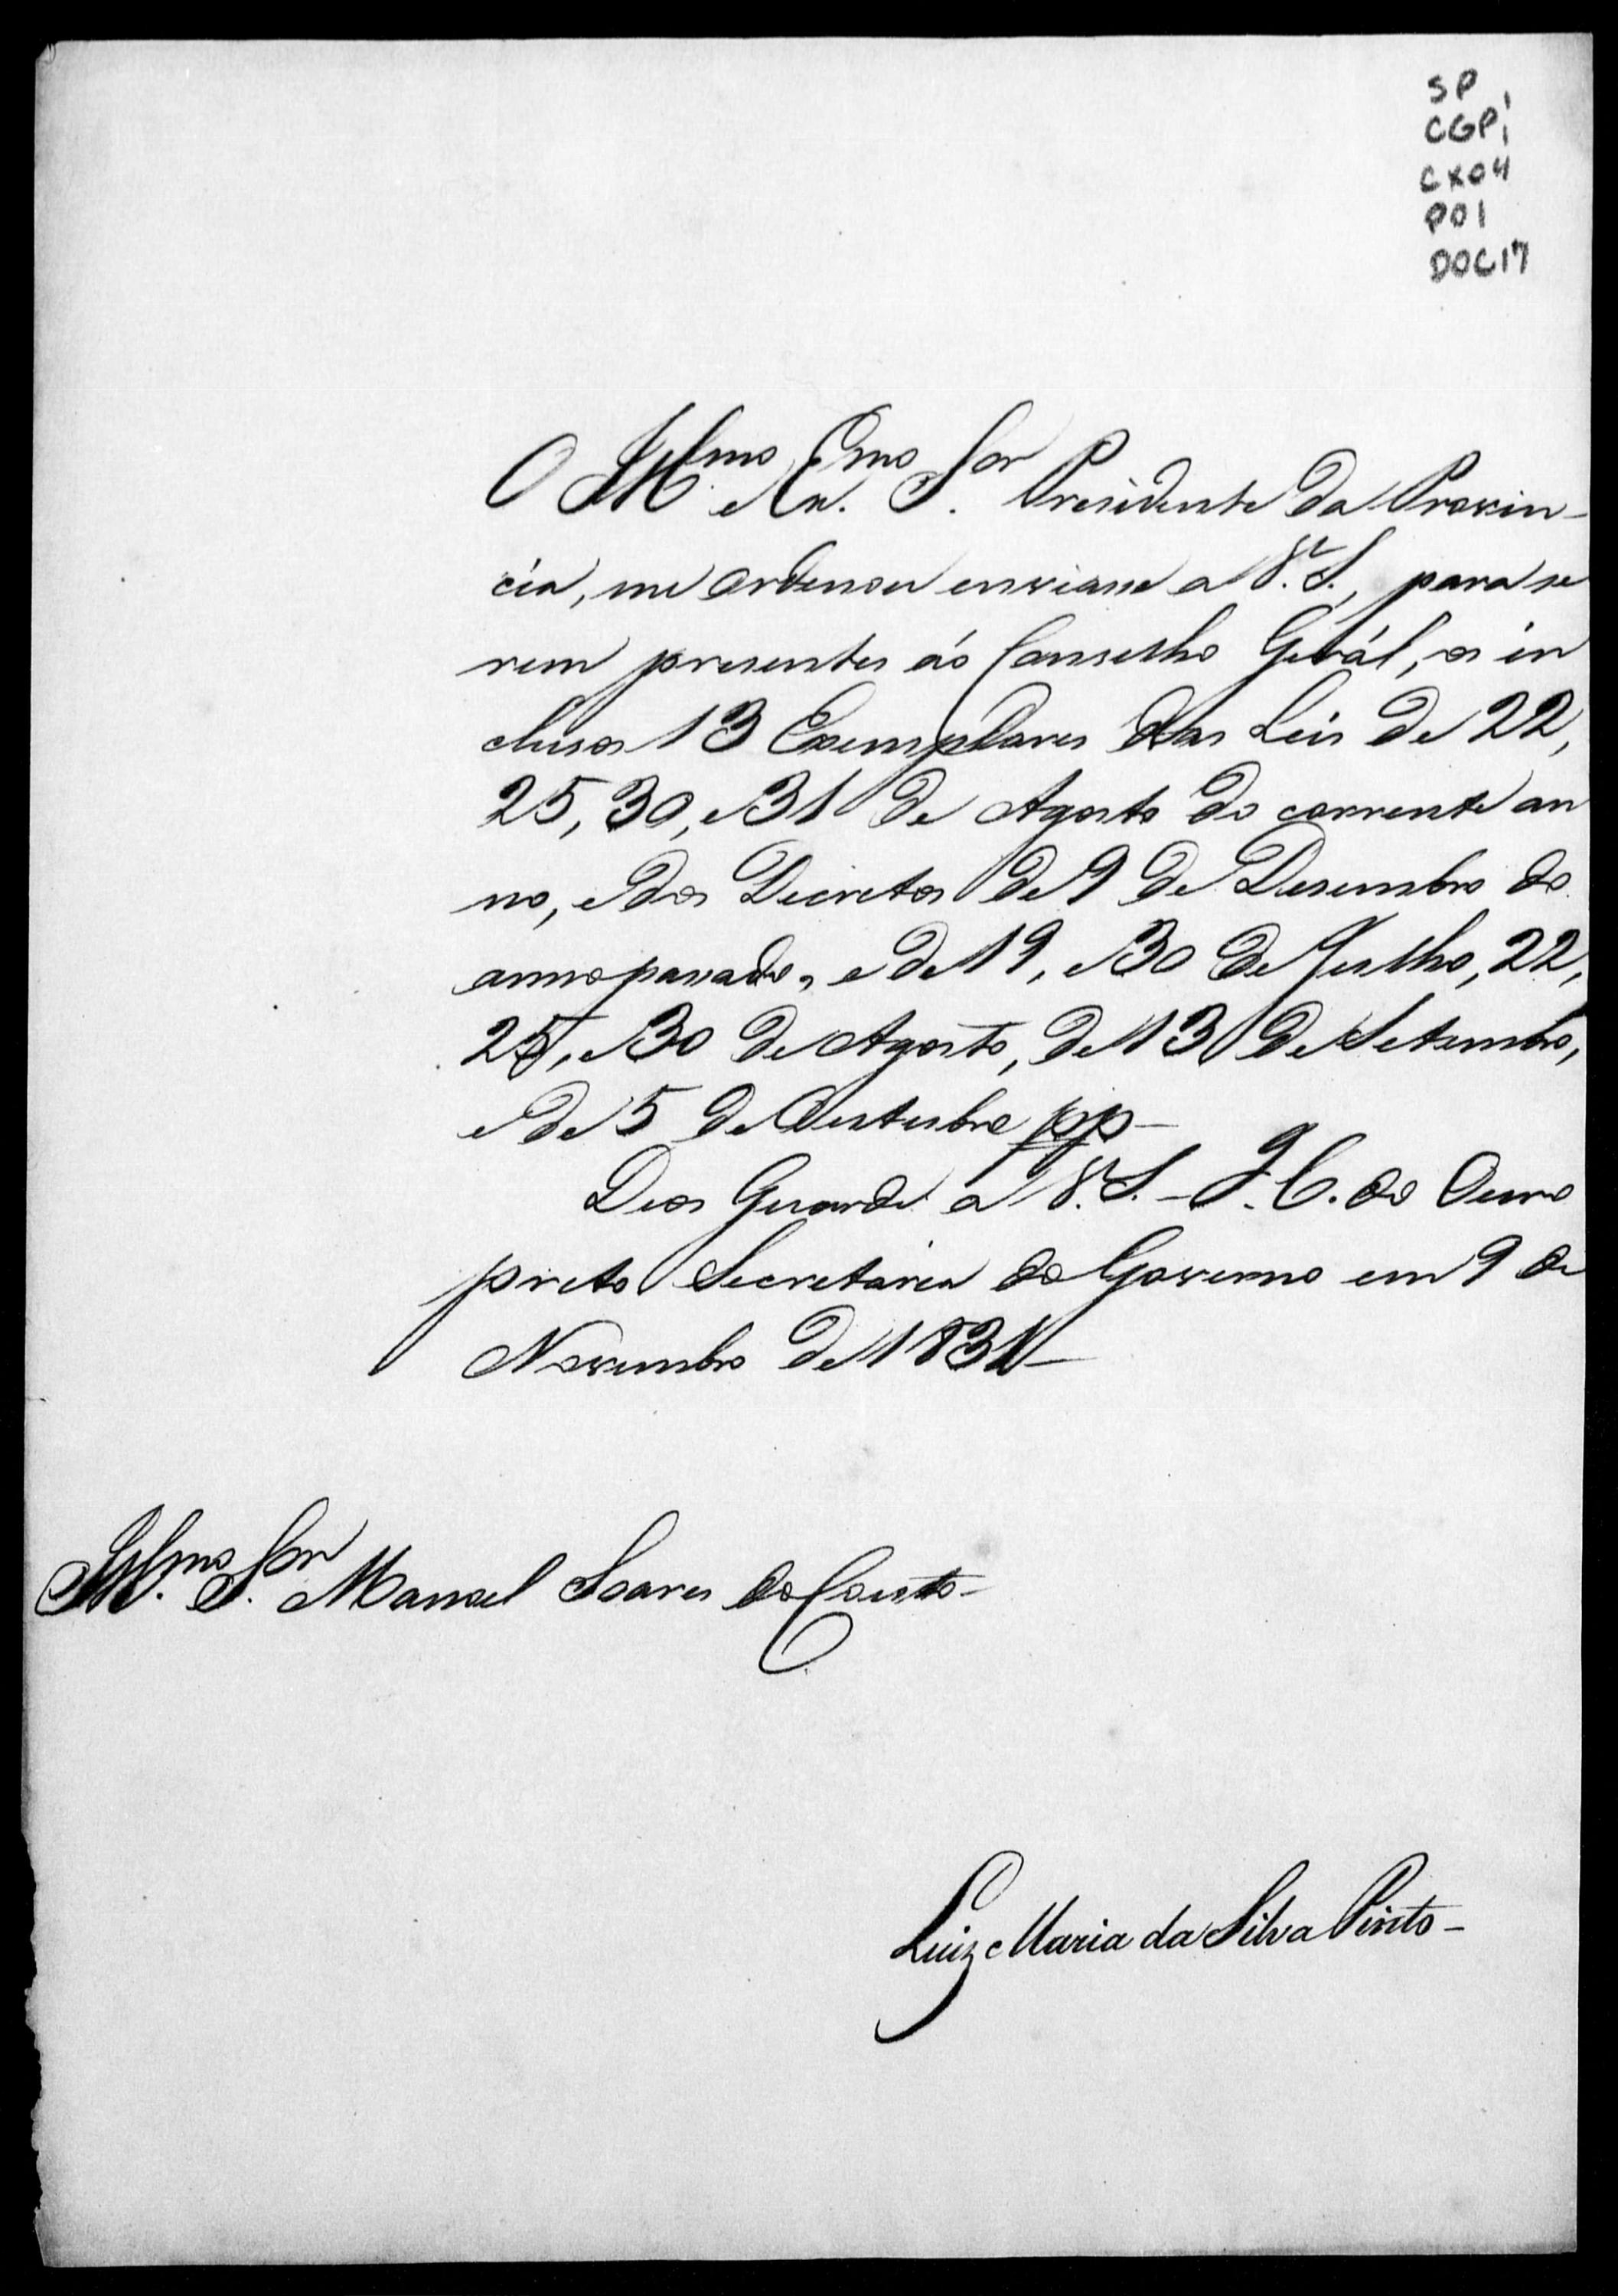 SP
CGP1
CX04
P01
DOC17
O Ill.mo e Ex.mo S.or Presidente da Provin-
cia, me ordenou enviasse a V. S., para se
rem presentes áo Conselho Gerál, os in
clusos 13 Exemplares das Leis de 22,
25, 30, e 31 de Agosto do corrente an
no, e dos Decretos de 9 de Desembro do
anno passado, e de 19, e 30 de Julho, 22,
25, e 30 de Agosto, de 13 de Setembro,
e de 5 de Outubro pp-
Deos Guarde a V. S. - I. C. do Ouro
preto Secretaria do Governo em 9 de
Novembro de 1831-
Ill.mo S.or Manoel Soares do Couto-
Luiz Maria da Silva Pinto-